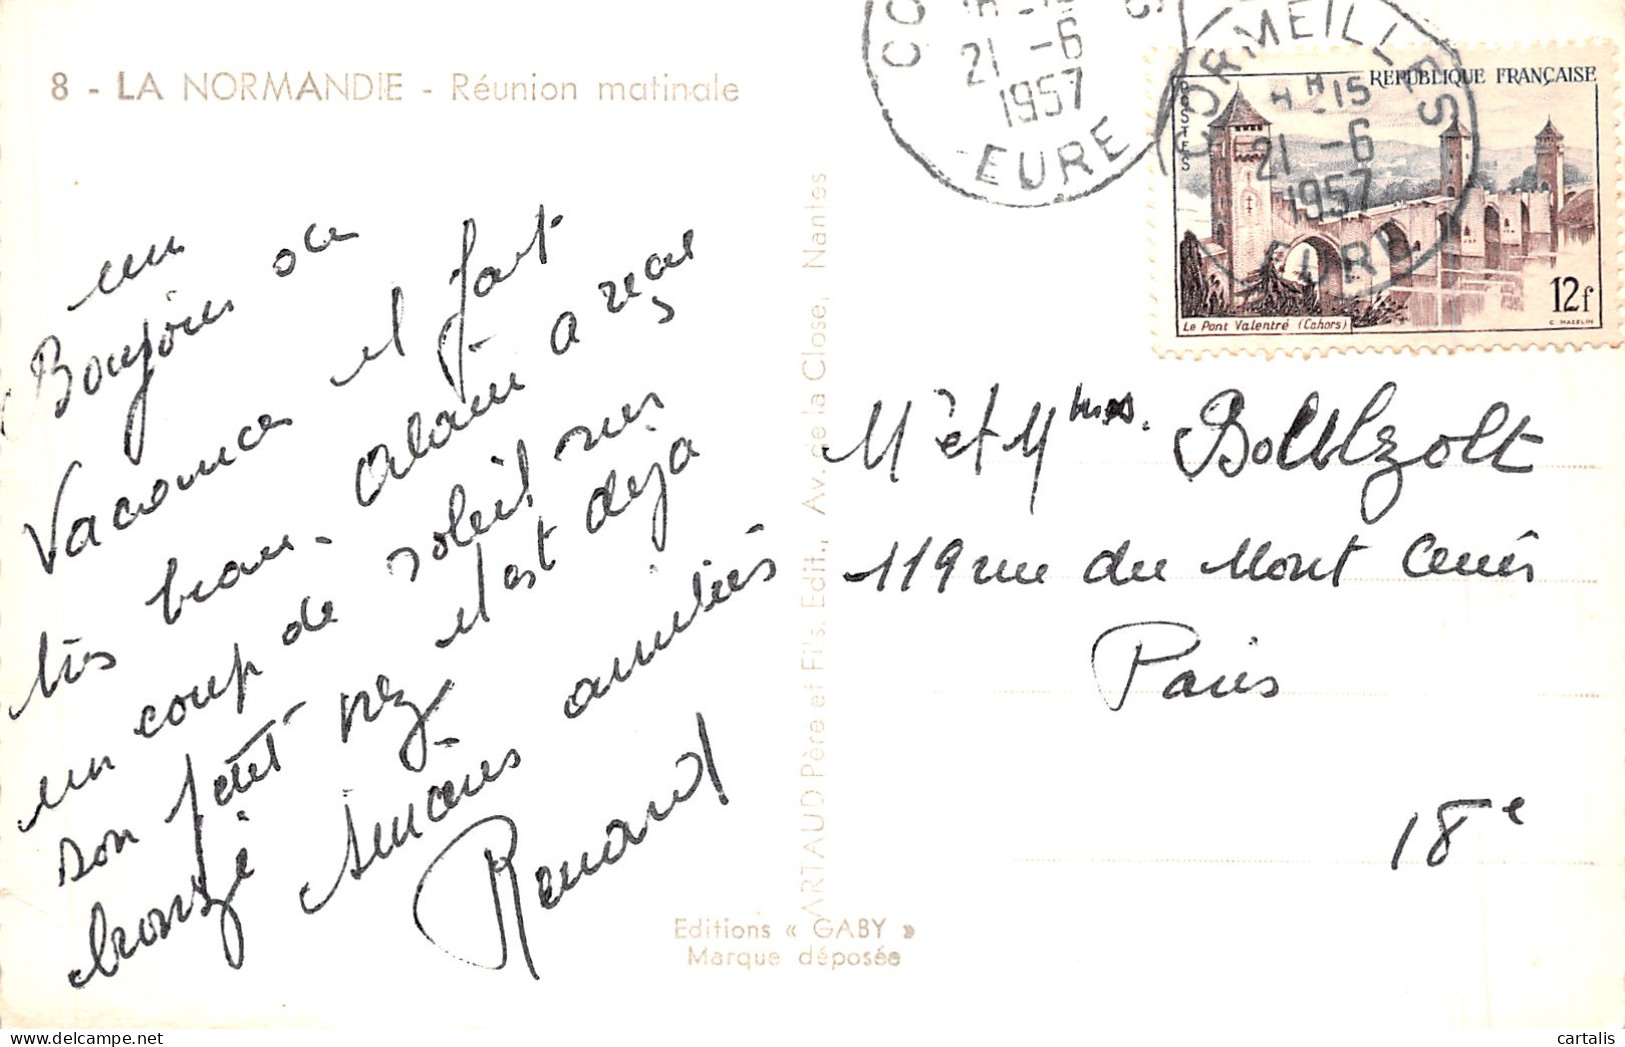 8 - LA NORMANDIE - Réunion matinale
un
Bonjour de
Vacances il fait
très beau. Alain a reçu
un coup de soleil sur
son petit nez il est déjà
bronzé Sincères amitiés
Renard
Editions « GABY »
Marque déposée
ARTAUD Père et Fils, Edit., Av. de la Close, Nantes
21 -6
1957
EURE
CORMEILLES
15
21 -6
1957
EURE
REPUBLIQUE FRANÇAISE
POSTES
12f
Le Pont Valentré (Cahors)
C. MAZELIN
Mr et Mme
119 rue du Mont Cenis
Paris
18e
cartalis.com